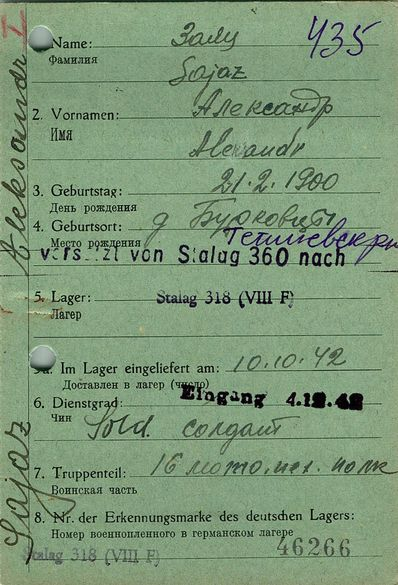 435
1. Name:
Фамилия
Sajaz
2. Vornamen: Александр
Имя
Alexandr
3. Geburtstag: 21.2.1900
День рождения
4. Geburtsort: д
Место рождения
versetzt von Stalag 360 nach
5. Lager: Stalag 318 (VIII F)
Лагер
5a. Im Lager eingeliefert am: 10.10.42
Доставлен в лагер (число)
Eingang 4.12.42
6. Dienstgrad:
Чин
Sold. солдат
7. Truppenteil: 16 полк
Воинская часть
8. Nr. der Erkennungsmarke des deutschen Lagers:
Номер военнопленного в германском лагере
Stalag 318 (VIII F) 46266
Sajaz Aleksandr